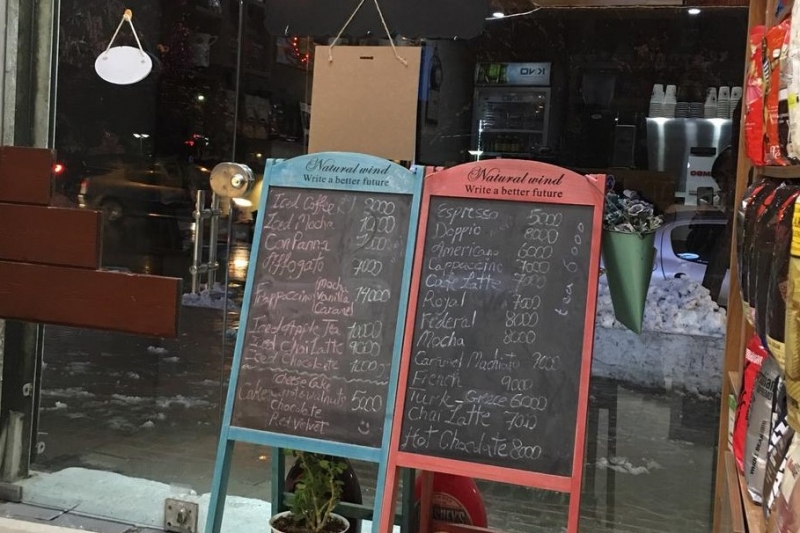 Natural wind
Write a better future
Iced Coffee
Iced Mocha
Con Panna
Affogato 9000
Frappaccino mocha vanilla Caramel 14000
Iced Apple Tea 10000
Iced Chai Latte 9000
Iced Chocolate
Cheese Cake
Cake 5000
Chocolate
Red Velvet
Natural wind
Write a better future
Espresso 5000
Doppio 8000
Americano 6000
Cappuccino 7000
Cafe Latte 7000
Royal 7000
Federal 8000
Mocha 8000
Caramel Machiato 7000
French 9000
Turk - Greece 6000
Chai Latte 7000
Hot Chocolate 8000
tea